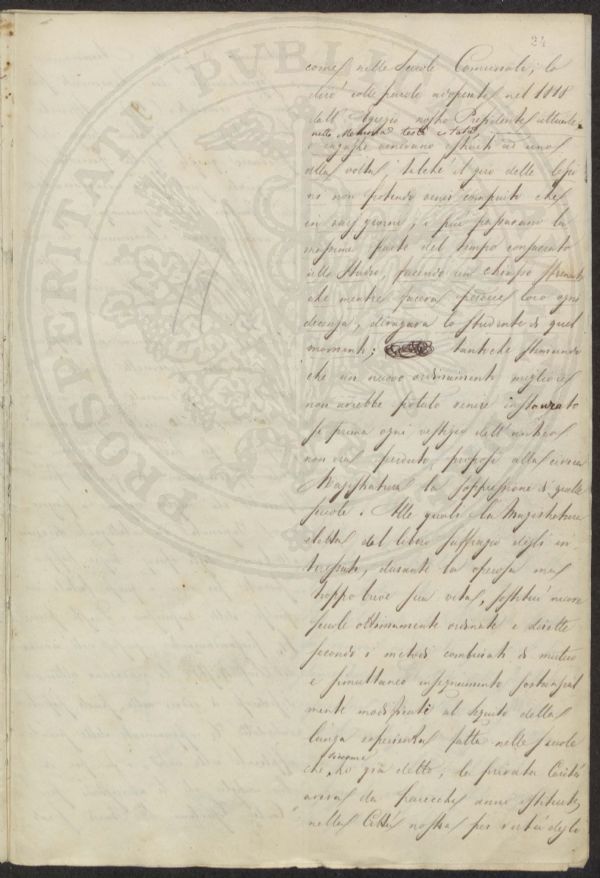 24
come nelle Scuole Comunali; lo
dirò colle parole adoperate nel 1848
dall' Egregio nostro Presidente attuale
nella Memoria testè citata,
i ragazzi venivano istruiti ad uno
alla volta, talchè il giro delle lezio
ni non potendo venir compiuto che
in sei giorni, i più passavano la
massima parte del tempo consacrato
allo Studio, facendo un chiasso
che mentre faceva perdere loro ogni
decenza, divagava lo studente di quel
momento; tanto che stimando
che un nuovo ordinamento migliore
non avrebbe potuto venire instaurato
se prima ogni vestigio dell' antico
non era perduto, proposi alla civica
Magistratura la soppressione di quelle
scuole. Alle quali la Magistratura
eletta dal libero suffragio degli in-
teressati, durante la operosa ma
troppo breve sua vita, sostituì nuove
scuole ottimamente ordinate e dirette
secondo i metodi combinati di mutuo
e simultaneo insegnamento sostanzial
mente modificati al seguito della
lunga esperienza fatta nelle scuole
che, siccome ho già detto, la privata Carità
aveva da parecchi anni istituite
nella Città nostra per virtù degli
PROSPERITATI PVBLI